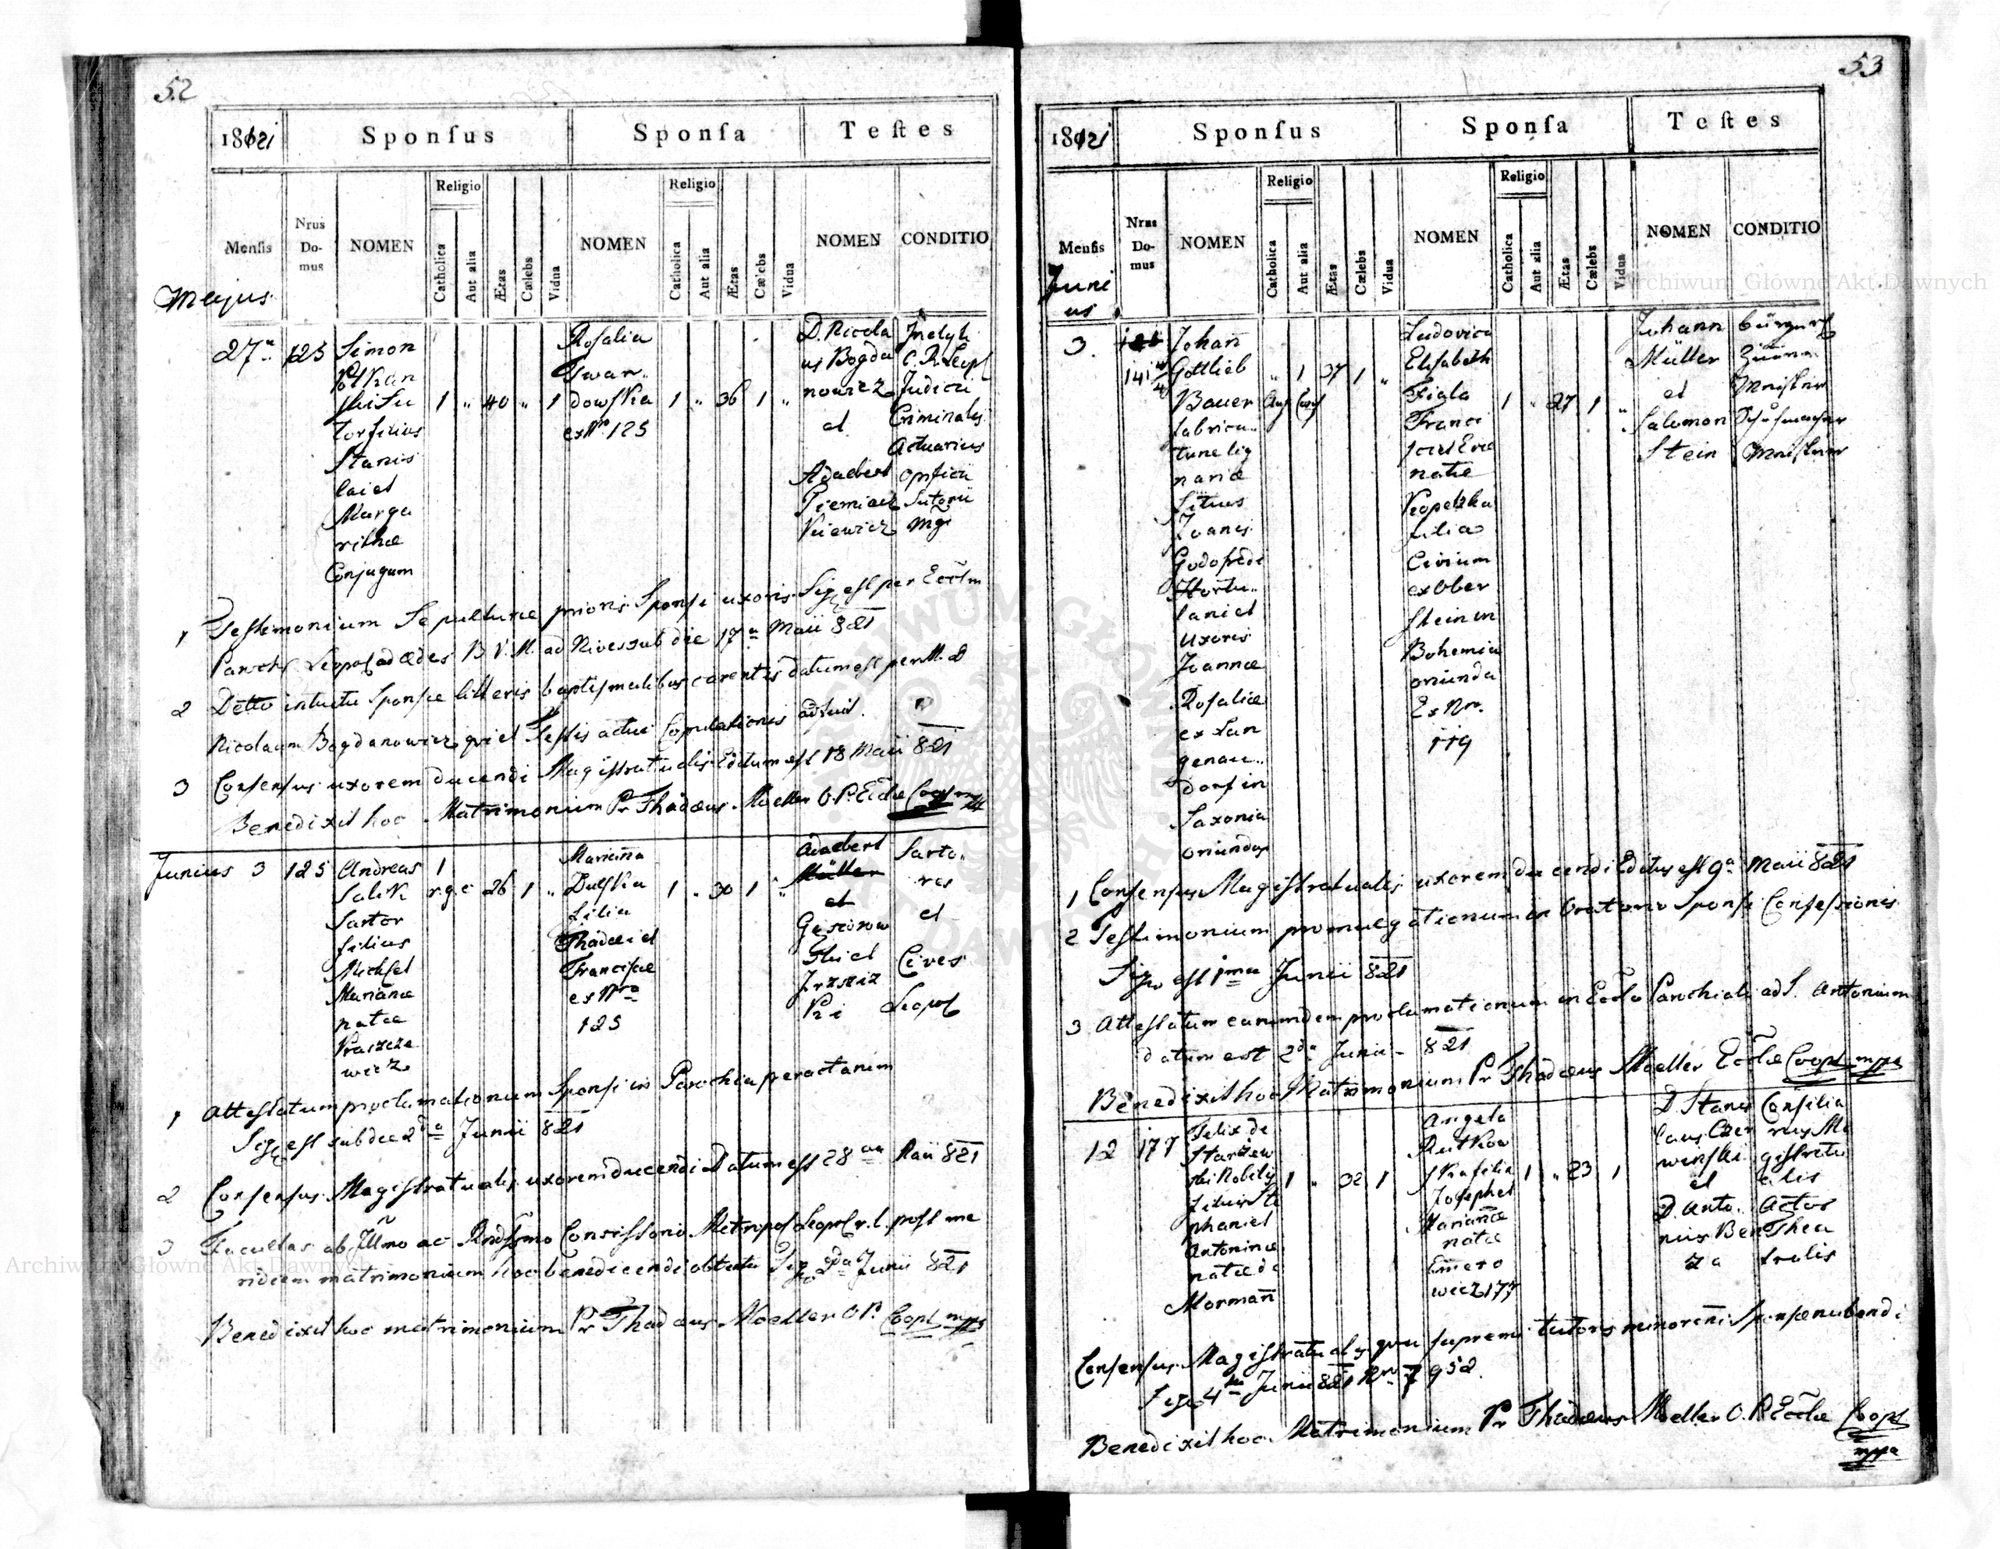 52
1821
Sponſus
Sponſa
Teſtes
Menſis
Nrus Do-mus
NOMEN
Religio
Catholica
Aut alia
Ætas
Cælebs
Vidua
NOMEN
Religio
Catholica
Aut alia
Ætas
Cælebs
Vidua
NOMEN
CONDITIO
Majus
27a 125
Simon
ſutor filius
Stanis
lai et
Marga
rithæ
Conjugum
1 " 40 " 1
Roſalia
Iwan
dowſka
ex Nro 125
1 " 36 1 "
D. Nicola
us Bogda
nowicz
et
Adalbert
Inclyti
C. R. Leopl
Judicii
Criminalis
Actuarius
opificii
Sutorii
Mgr
1 Teſtimonium Sepulturæ prioris Sponſi uxoris Sig. eſt per Eccłm
Paroch. Leopol ad ædes B. V. M. ad Nives sub die 17a Maii 821
2 Detto intuitu Sponſæ litteris baptiſmalibus carentis datum eſt per M. D
Nicolaum Bogdanowicz qui et Teſtis actui Copulationis adfuit.
3 Conſenſus uxorem ducendi Magiſtratualis Editum eſt 18 Maii 821
Benedixit hoc Matrimonium Pr Thadæus Moeller O. P. Eccłæ Coop mpp
Junius 3 125
Andreas
Salik
Sartor
filius
Michſel
Marianæ
natæ
1
r.g.c 26 1 "
Marianna
Dulſka
filia
Thadæi et
Franciſcæ
ex Nro
125
1 " 30 1 "
Adalbert
Müller
et
Sarto
res
et
Cives
Leopol
1 Atteſtatum proclamationum Sponſi in Parochia peractarum
Sig. eſt sub die 2da Junii 821
2 Conſenſus Magiſtratualis uxorem ducendi Datum eſt 28va Maii 821
3 Facultas ab Illmo ac Rndſſmo Conſiſtorio Metropol Leopol r. l. poſt me
ridiem matrimonium hoc benedicendi obtenta Sig 2da Junii 821
Benedixit hoc matrimonium Pr Thadæus Moeller O. P. Coopl mpp
53
1821
Sponſus
Sponſa
Teſtes
Menſis
Nrus Do-mus
NOMEN
Religio
Catholica
Aut alia
Ætas
Cælebs
Vidua
NOMEN
Religio
Catholica
Aut alia
Ætas
Cælebs
Vidua
NOMEN
CONDITIO
Juni
us
3.
141 4/4
Johan
Gottlieb
Bauer
fabrica
turæ lig
nariæ
Joanis
Godofredi
Hortu
lani et
uxoris
Joannæ
Roſaliæ
ex Lan
genau
dorf in
Saxonia
oriundus
" 1 37 1 "
Aug Conf
Ludovica
Eliſabeth
Figla
Franci
ſci et Eve
natæ
filia
Civium
ex Ober
ſtein in
Bohemia
oriunda
Ex Nro
119
1 " 27 1 "
Johann
Müller
et
Salomon
Stein
Meiſter
Schuhmacher
Meiſter
1 Conſenſus Magiſtratualis uxorem ducendi Editus eſt 9a Maii 821
2 Teſtimonium promulgationum in Oratorio Sponſi Confeſſionis
Sig. eſt 1ma Junii 821
3 Atteſtatum earumdem proclamationum in Eccła Parochiali ad S. Antonium
datum est 2da Junii 821
Benedixit hoc Matrimonium Pr Thadæus Moeller Eccłæ Coopl mppa
12 177
Felix de
Starzew
ſki Nobilis
filius Ste
phani et
Antoninæ
natæ de
Morman
1 " 32 1
Angela
Rutkow
ſka filia
Joſephi et
Mariannæ
natæ
wicz 177
1 " 23 1
D. Stanis
laus
et
D. Anto
nius Ben
za
Conſilia
rius Ma
giſtratu
alis
Actor
Thea
tralis
Conſenſus Magiſtratualis qua ſupremi tutoris minoreñi Sponſæ nubendi
Sig. 4ta Junii 821 Nro 7952
Benedixit hoc Matrimonium Pr Thadæus Moeller O. P. Eccłæ Coopl
mppa
Archiwum Główne Akt Dawnych
Archiwum Główne Akt Dawnych
ARCHIWUM GŁÓWNE AKT DAWNYCH